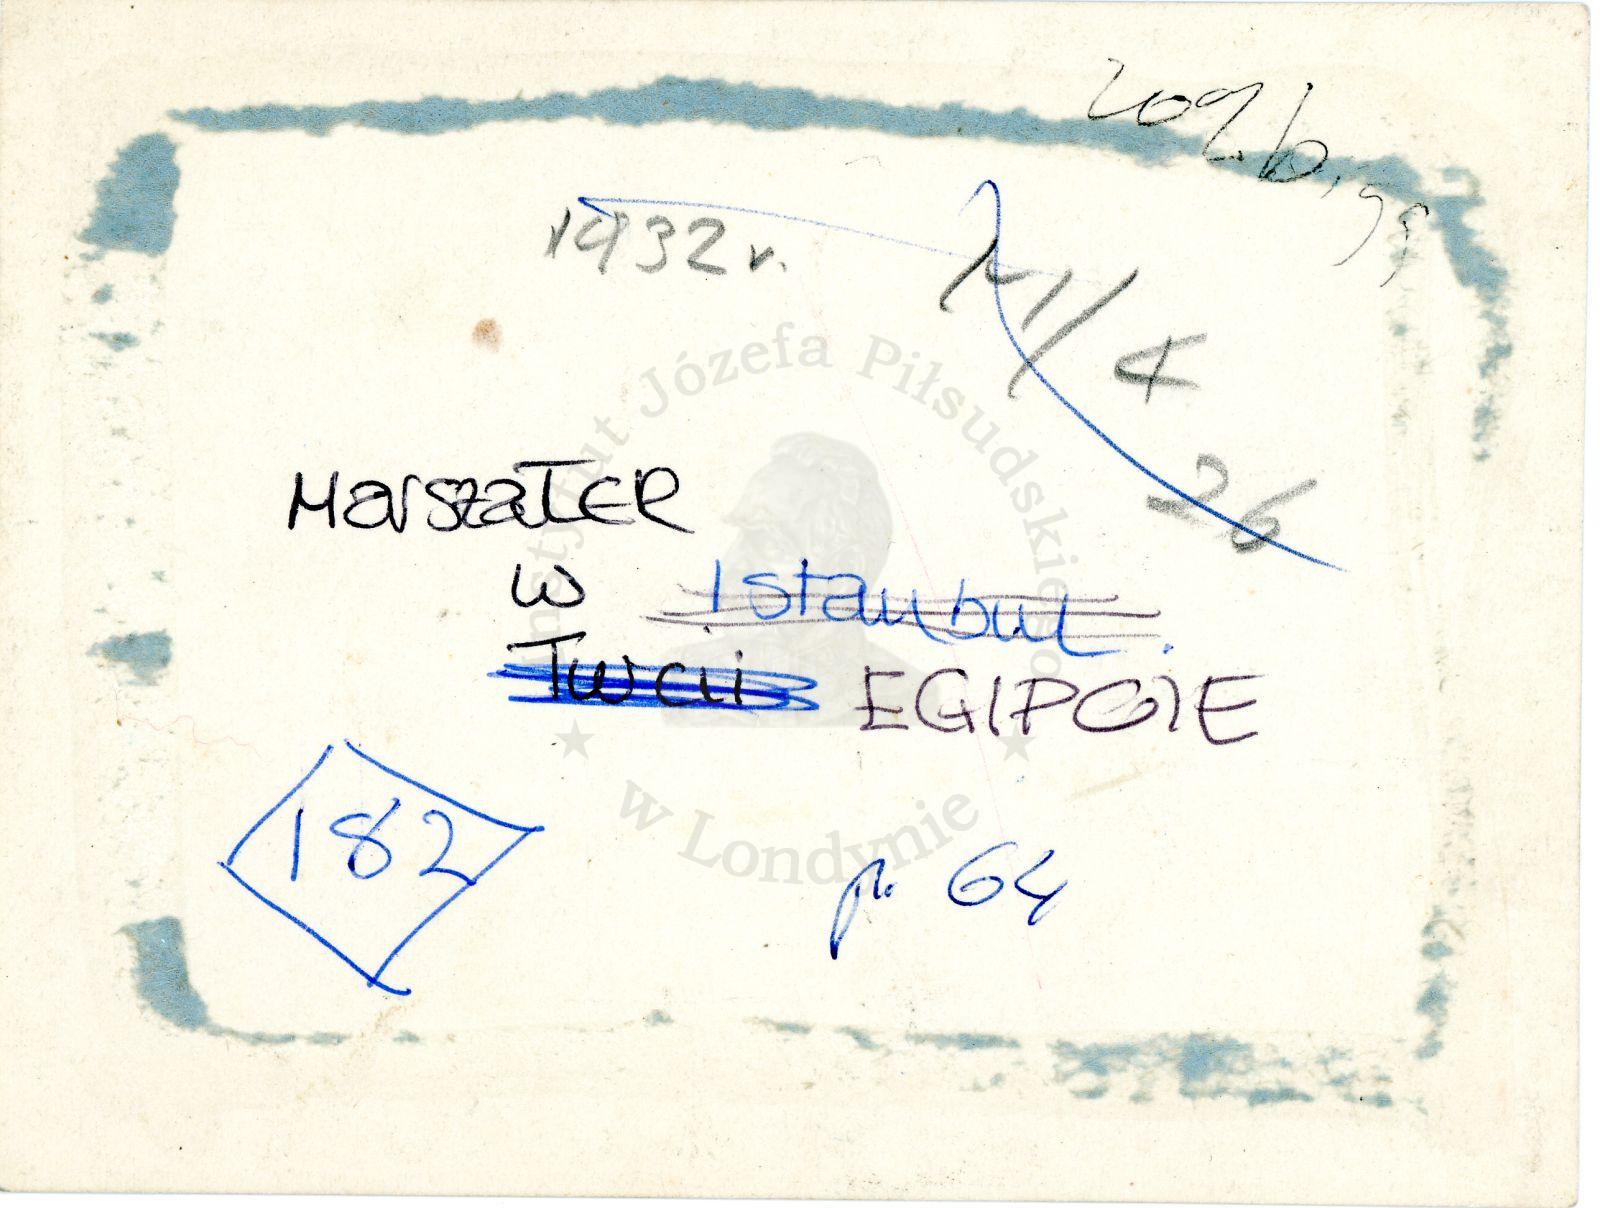 209.b,
1932 r.
/4
26
Marszałek
w Istanbul.
Turcji EGIPCIE
182
p. 64
Instytut Józefa Piłsudskiego
w Londynie